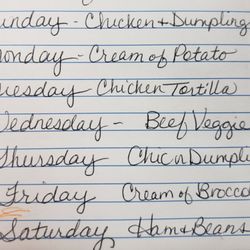 unday - Chicken + Dumpling
onday - Cream of Potato
uesday Chicken Tortilla
Wednesday - Beef Veggie
Thursday Chic n Dumpli
Friday Cream of Brocco
Saturday Ham + Beans